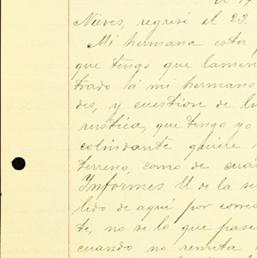 Nieves, regresé el 29.
Mi hermana esta
que tengo que lamen
trado lá mi hermano
des, y cuestion de l
rustica, que tengo yo
colindante quiere
terreno, como de cua
Informes U de la se
lido de aquí por corre
te, no se lo que pase
cuando no remita